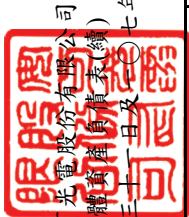 光電股份有限公司
體資產負債表(續)
三十一日及一〇七年